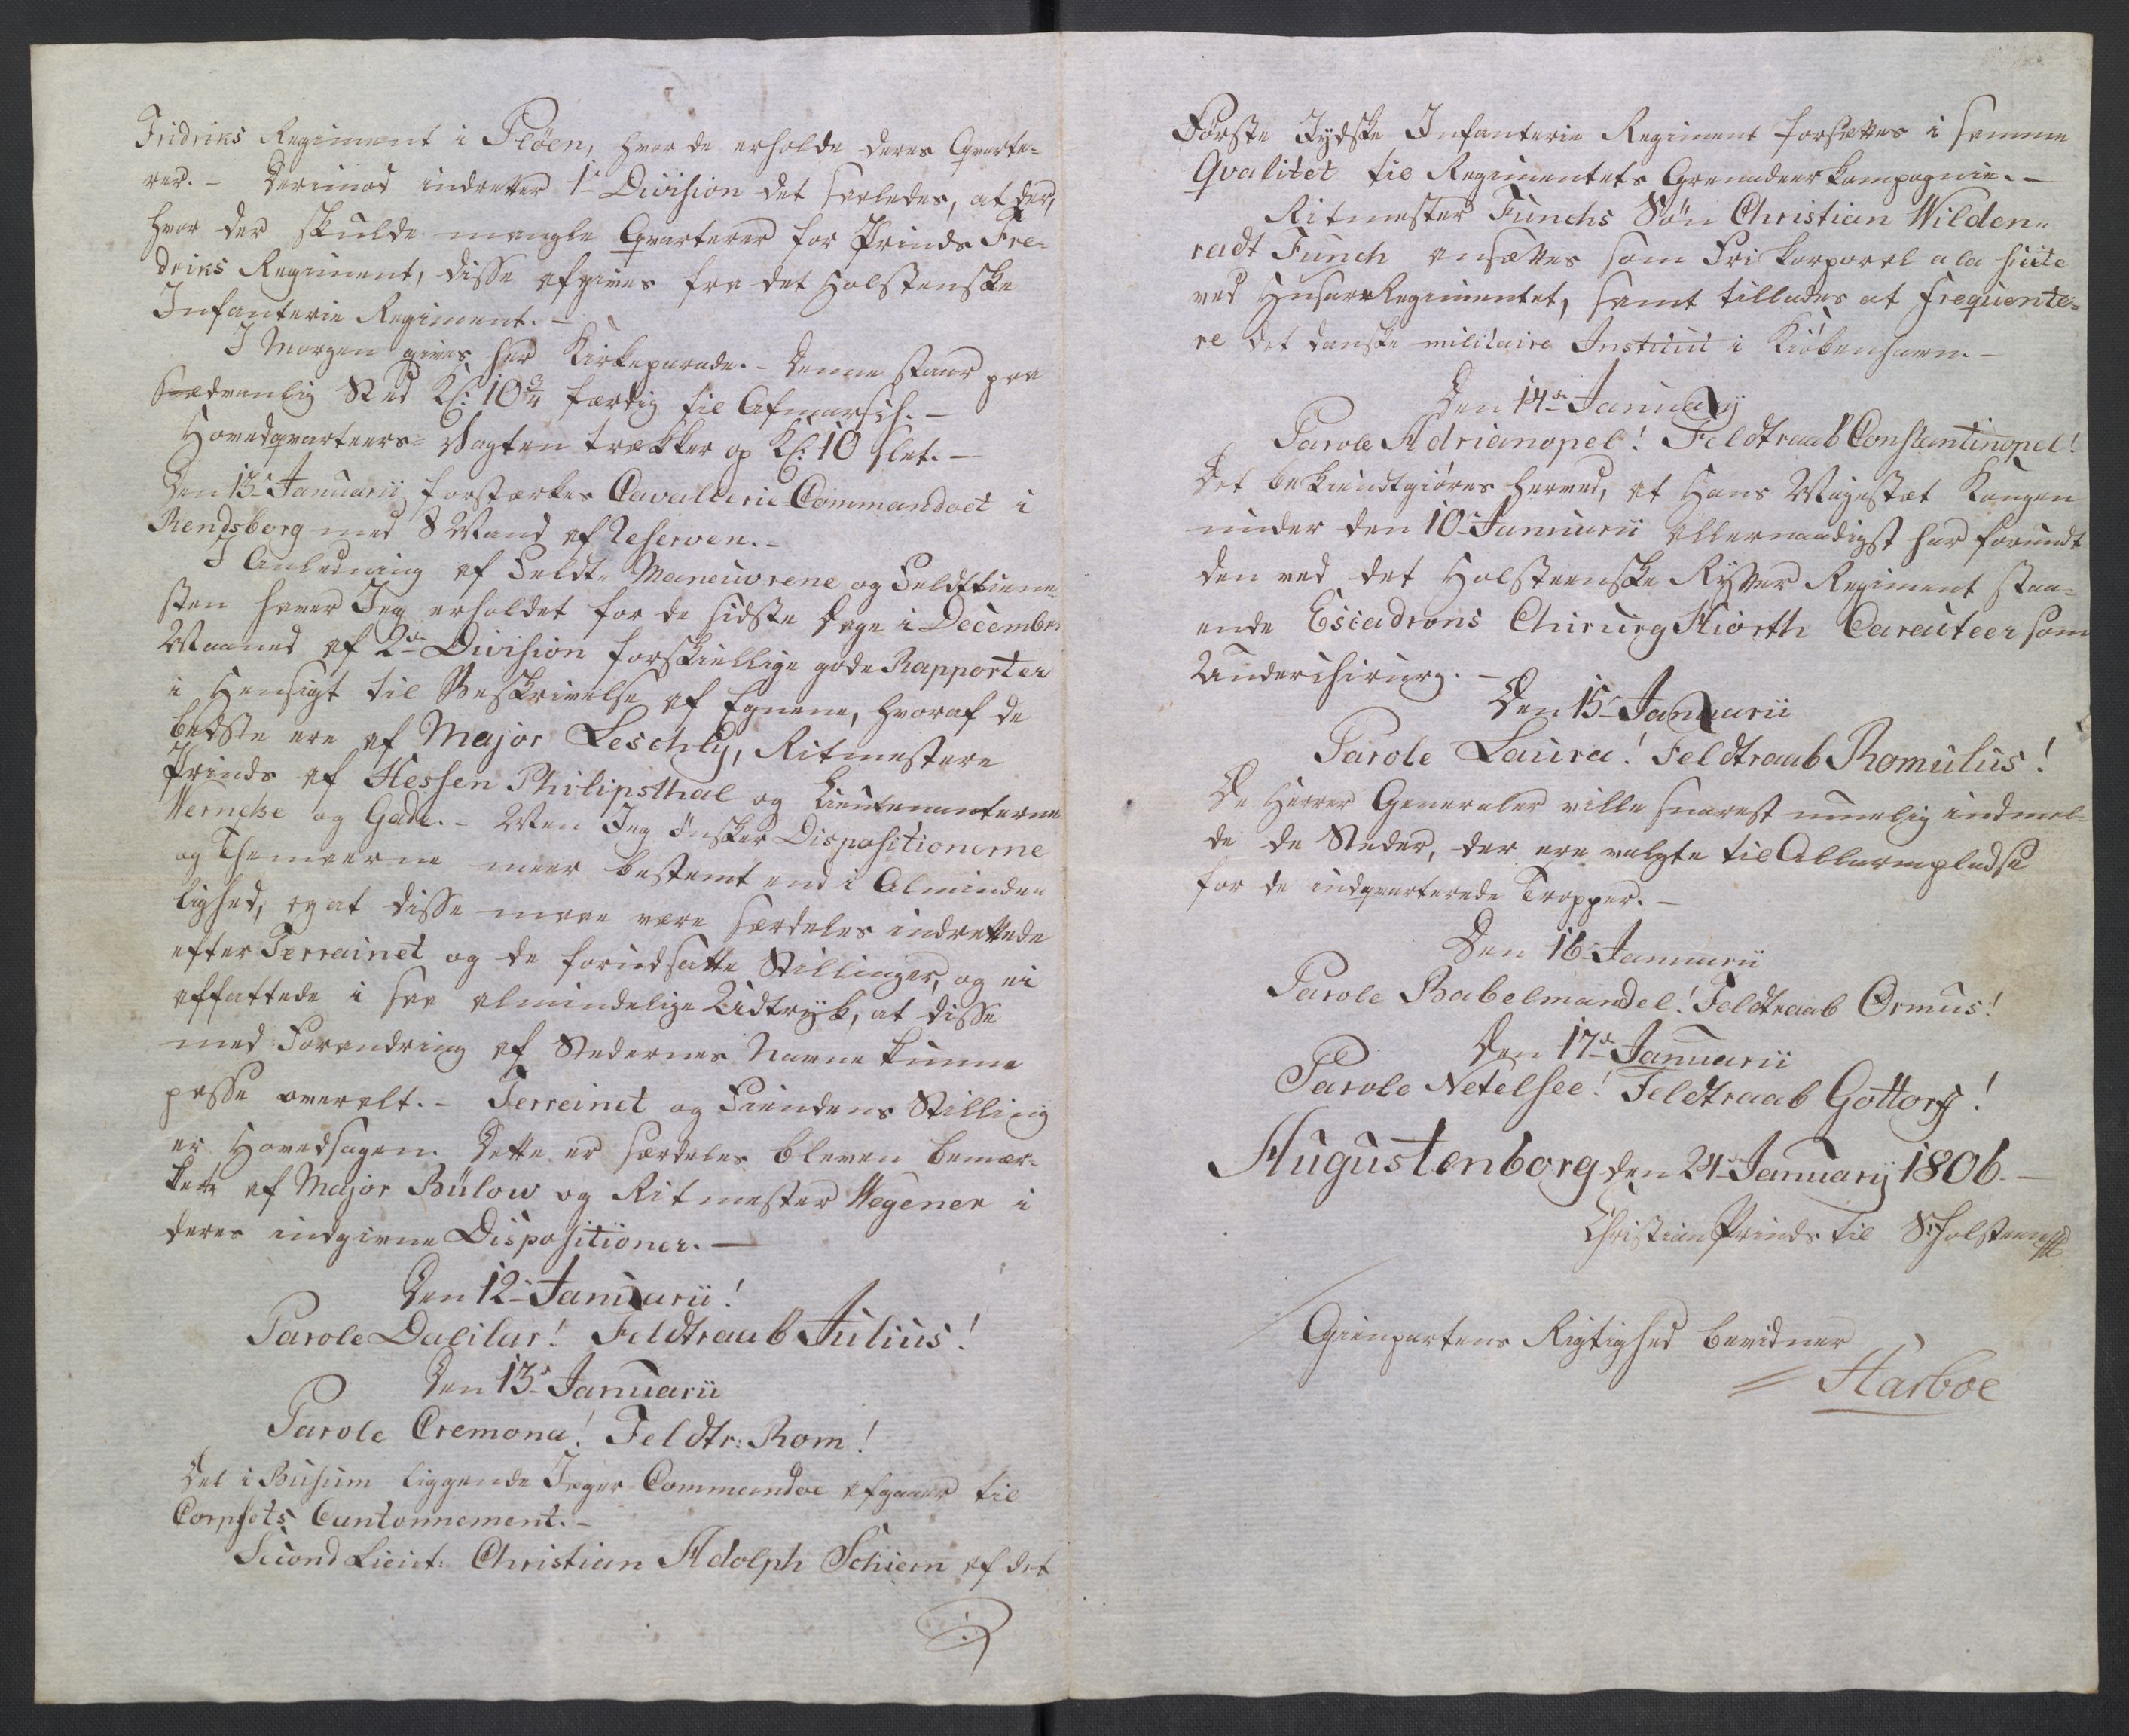 Fridriks Regiment i Pløen, hvor de erholde deres Qvarte-
rer. – Derimod indretter 1ste Division det saaledes, at der,
hvor der skulde mangle Qvarterer for Prinds Fre-
driks Regiment, disse afgives fra det Holstenske
Infanterie Regiment. –
I Morgen gives her Kirkeparade. – Denne staar paa
sædvanlig Sted Kl: 10¾ færdig til Afmarsch. –
Hovedqvarteers-Vagten trækker op Kl: 10 slet. –
Den 13de Januarii forstærkes Cavallerie-Commandoet i
Rendsborg med 8 Mand af Reserven. –
I Anledning af Feldt-Maneuvrene og Feldttiene-
sten haver Jeg erholdet for de sidste Dage i December
Maaned af 2den Division forskiellige gode Rapporter
i Hensigt til Beskrivelse af Egnene, hvoraf de
bedste ere af Major Leschly, Ritmestere
Prinds af Hessen Philipsthal og Lieutenanterne
Wernetse og Gade. – Men Jeg ønsker Dispositionerne
og Themaerne meer bestemt end i Alminde-
lighed, og at disse maae være særdeles indrettede
efter Terrainet og de forudsatte Stillinger, og ei
affattede i saa almindelige Udtryk, at disse
med Forandring af Stedernes Navne kunne
passe overalt. – Terreinet og Fiendens Stilling
er Hovedsagen. Dette er særdeles bleven bemær-
ket af Major Bülow og Ritmester Wegener i
deres indgivne Dispositioner. –
Den 12te Januarii!
Parole Dalilar! Feldtraab Julius!
Den 13de Januarii
Parole Cremona! Feldtr: Rom!
Det i Büsum liggende Jæger Commandoe afgaaer til
Corpsets Cantonnement. –
Second Lieut: Christian Adolph Schiern af det
Første Jydske Infanterie Regiment forsættes i samme
Qvalitet til Regimentets Grenadeerkompagnie. –
Ritmester Funchs Søn Christian Wilden-
radt Funch ansættes som Fri Korporal a la suite
ved Husarregimentet, samt tillades at frequente-
re det danske militaire Institut i Kiøbenhavn. –
Den 14de Januarij
Parole Adrianopel! Feldtraab Constantinopel!
Det bekiendtgiøres herved, at Hans Majestæt Kongen
under den 10de Januarii allernaadigst har forundt
den ved det Holsteenske Rytter Regiment staa-
ende Escadrons Chirurg Hiorth Caracteer som
Underchirurg. –
Den 15de Januarii
Parole Laura! Feldtraab Romulus!
De Herrer Generaler ville snarest muelig indmel-
de de Steder, der ere valgte til Allarmpladse
for de indqvarterede Tropper. –
Den 16de Januarii
Parole Babelmandel! Feldtraab Ormus!
Den 17de Januarii
Parole Netelsee! Feldtraab Gottorff!
Augustenborg den 24de Januarij 1806. –
Christian Prinds til S: Holsteen
Gienpartens Rigtighed bevidner
Harboe